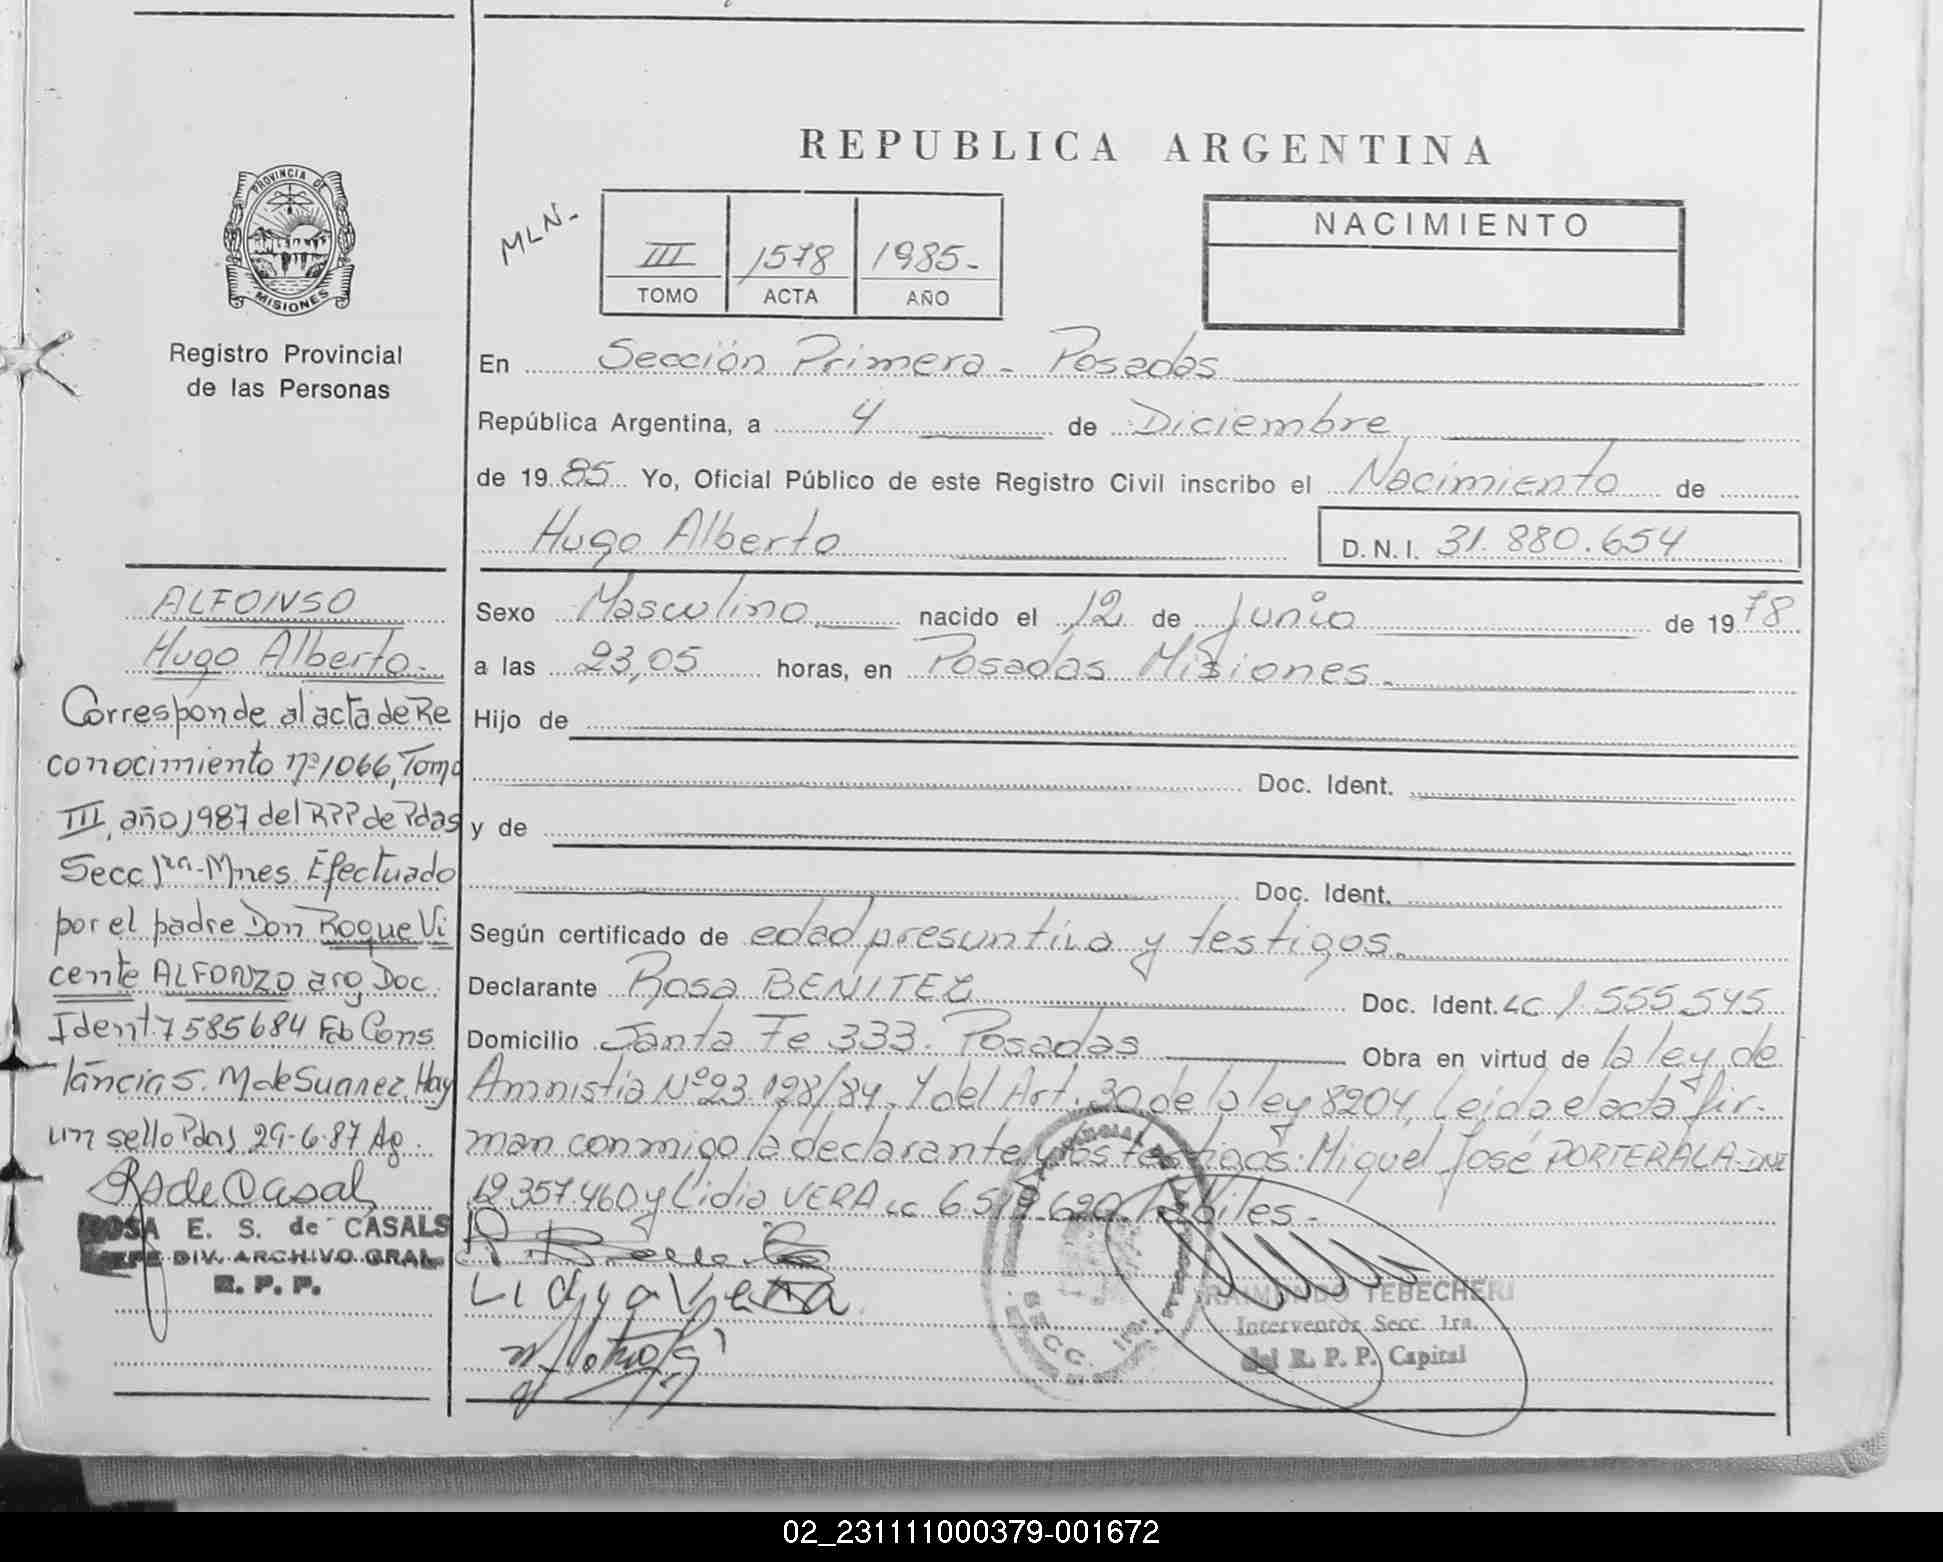 REPUBLICA ARGENTINA
PROVINCIA DE
MISIONES
Registro Provincial
de las Personas
MLN-
III 1578 1985-
TOMO ACTA AÑO
NACIMIENTO
En Sección Primera - Posadas
República Argentina, a 4 de Diciembre
de 1985 Yo, Oficial Público de este Registro Civil inscribo el Nacimiento de
Hugo Alberto D.N.I. 31.880.654
Sexo Masculino nacido el 12 de Junio de 1978
a las 23,05 horas, en Posadas Misiones.
Hijo de
Doc. Ident.
y de
Doc. Ident.
Según certificado de edad presuntiva y testigos.
Declarante Rosa BENITEZ Doc. Ident. LC 1.555.545
Domicilio Santa Fe 333. Posadas Obra en virtud de la ley de
Amnistia Nº 23.128/84. Y del Art. 30 de la ley 8204, Leida el acta fir-
man conmigo la declarante y los testigos: Miguel José PORTERALA DNI
12.357.460 y Lidia VERA LC 6.519.620 habiles.-
Lidya Vera
SECC. 1ra.
RAIMUNDO TEBECHERI
Interventor Secc. 1ra.
del R. P. P. Capital
ALFONSO
Hugo Alberto.-
Corresponde al acta de Re
conocimiento nº 1066, Tomo
III, año 1987 del RPP de Pdas
Secc 1ra.-Mnes. Efectuado
por el padre Don Roque Vi
cente ALFONZO arg Doc.
Ident. 7585684 Fdo Cons
tancia S. M de Suarez, Hay
un sello Pdas 29-6-87 Ag.
R S de Casals
ROSA E. S. de CASALS
JEFE DIV. ARCHIVO GRAL.
R. P. P.
02_231111000379-001672